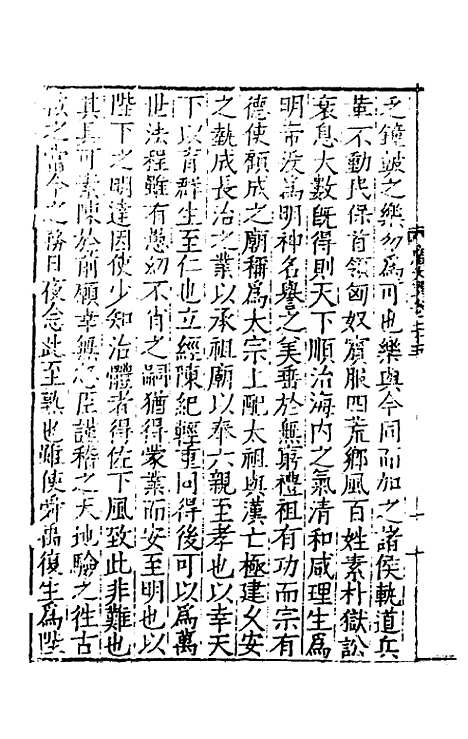 之鐘鼓之樂勿為可也樂與今同而加之諸侯軌道兵
革不動民保首領匈奴賓服四荒鄉風百姓素朴獄訟
衰息大數既得則天下順治海內之氣清和咸理生為
明帝沒為明神名譽之美垂於無窮禮祖有功而宗有
德使顧成之廟稱為太宗上配太祖與漢亡極建久安
之埶成長治之業以承祖廟以奉六親至孝也以幸天
下以育群生至仁也立經陳紀輕重同得後可以為萬
世法程雖有愚幼不肖之嗣猶得蒙業而安至明也以
陛下之明達因使少知治體者得佐下風致此非難也
其具可素陳於前願幸無忽臣謹稽之天地驗之往古
按之當今之務日夜念此至孰也雖使舜禹復生為陛